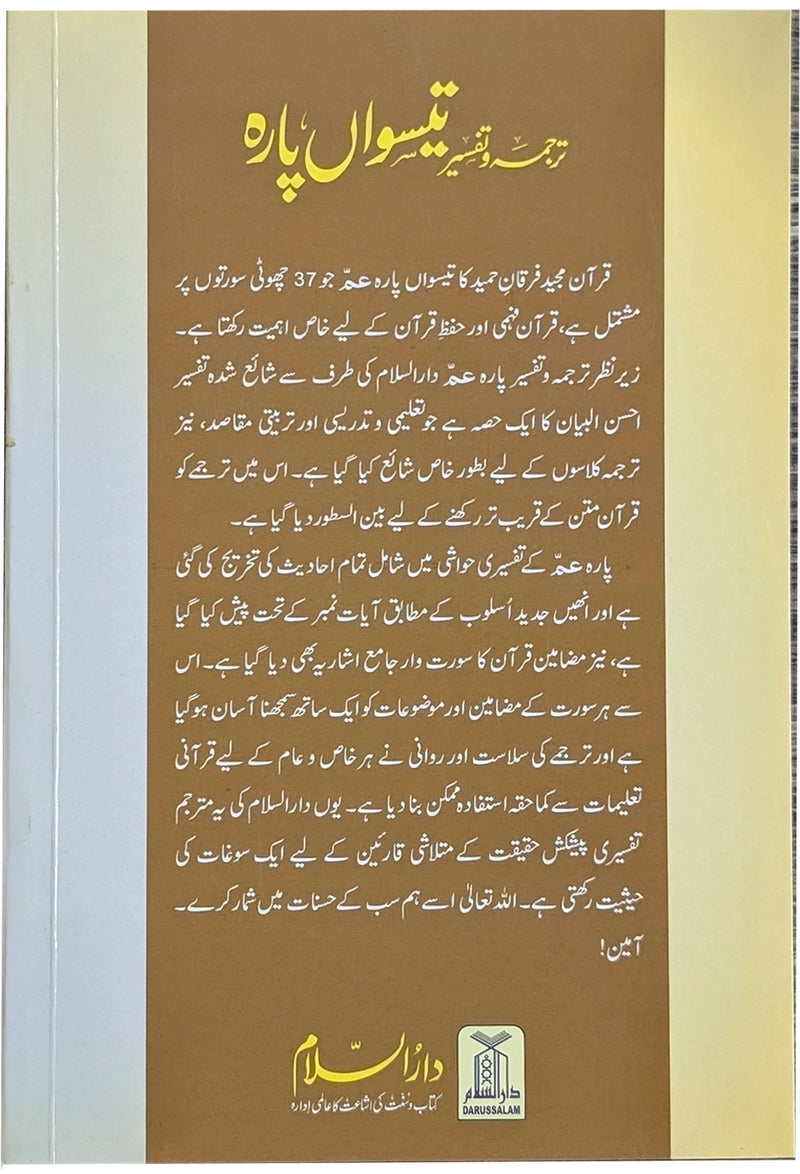 ترجمہ و تفسیر تیسواں پارہ
قرآن مجید فرقانِ حمید کا تیسواں پارہ عمّ جو 37 چھوٹی سورتوں پر
مشتمل ہے، قرآن فہمی اور حفظِ قرآن کے لیے خاص اہمیت رکھتا ہے۔
زیر نظر ترجمہ و تفسیر پارہ عمّ دارالسلام کی طرف سے شائع شدہ تفسیر
احسن البیان کا ایک حصہ ہے جو تعلیمی و تدریسی اور تربیتی مقاصد، نیز
ترجمہ کلاسوں کے لیے بطور خاص شائع کیا گیا ہے۔ اس میں ترجمے کو
قرآن متن کے قریب تر رکھنے کے لیے بین السطور دیا گیا ہے۔
پارہ عمّ کے تفسیری حواشی میں شامل تمام احادیث کی تخریج کی گئی
ہے اور انھیں جدید اُسلوب کے مطابق آیات نمبر کے تحت پیش کیا گیا
ہے، نیز مضامین قرآن کا سورت وار جامع اشاریہ بھی دیا گیا ہے۔ اس
سے ہر سورت کے مضامین اور موضوعات کو ایک ساتھ سمجھنا آسان ہو گیا
ہے اور ترجمے کی سلاست اور روانی نے ہر خاص و عام کے لیے قرآنی
تعلیمات سے کماحقہ استفادہ ممکن بنا دیا ہے۔ یوں دارالسلام کی یہ مترجم
تفسیری پیشکش حقیقت کے متلاشی قارئین کے لیے ایک سوغات کی
حیثیت رکھتی ہے۔ اللہ تعالیٰ اسے ہم سب کے حسنات میں شمار کرے۔
آمین!
دارُالسّلام
کتاب و سنت کی اشاعت کا عالمی ادارہ
دارالسلام
DARUSSALAM